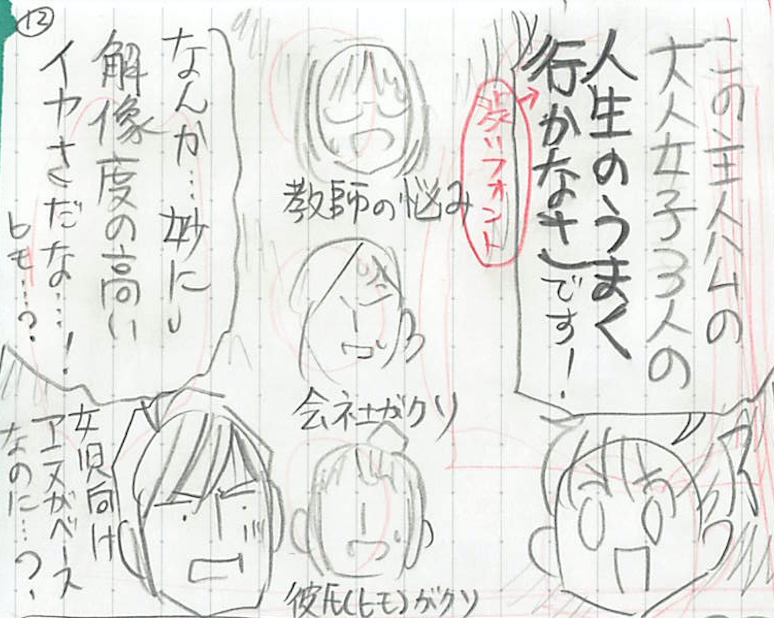 ⑫
この主人公の
大人女子3人の
人生のうまく
行かなさです!
渋いフォント
教師の悩み
会社がクソ
彼氏(ヒモ)がクソ
なんか…妙に
解像度の高い
イヤさだな…!
ヒモ…?
女児向け
アニメがベース
なのに…?